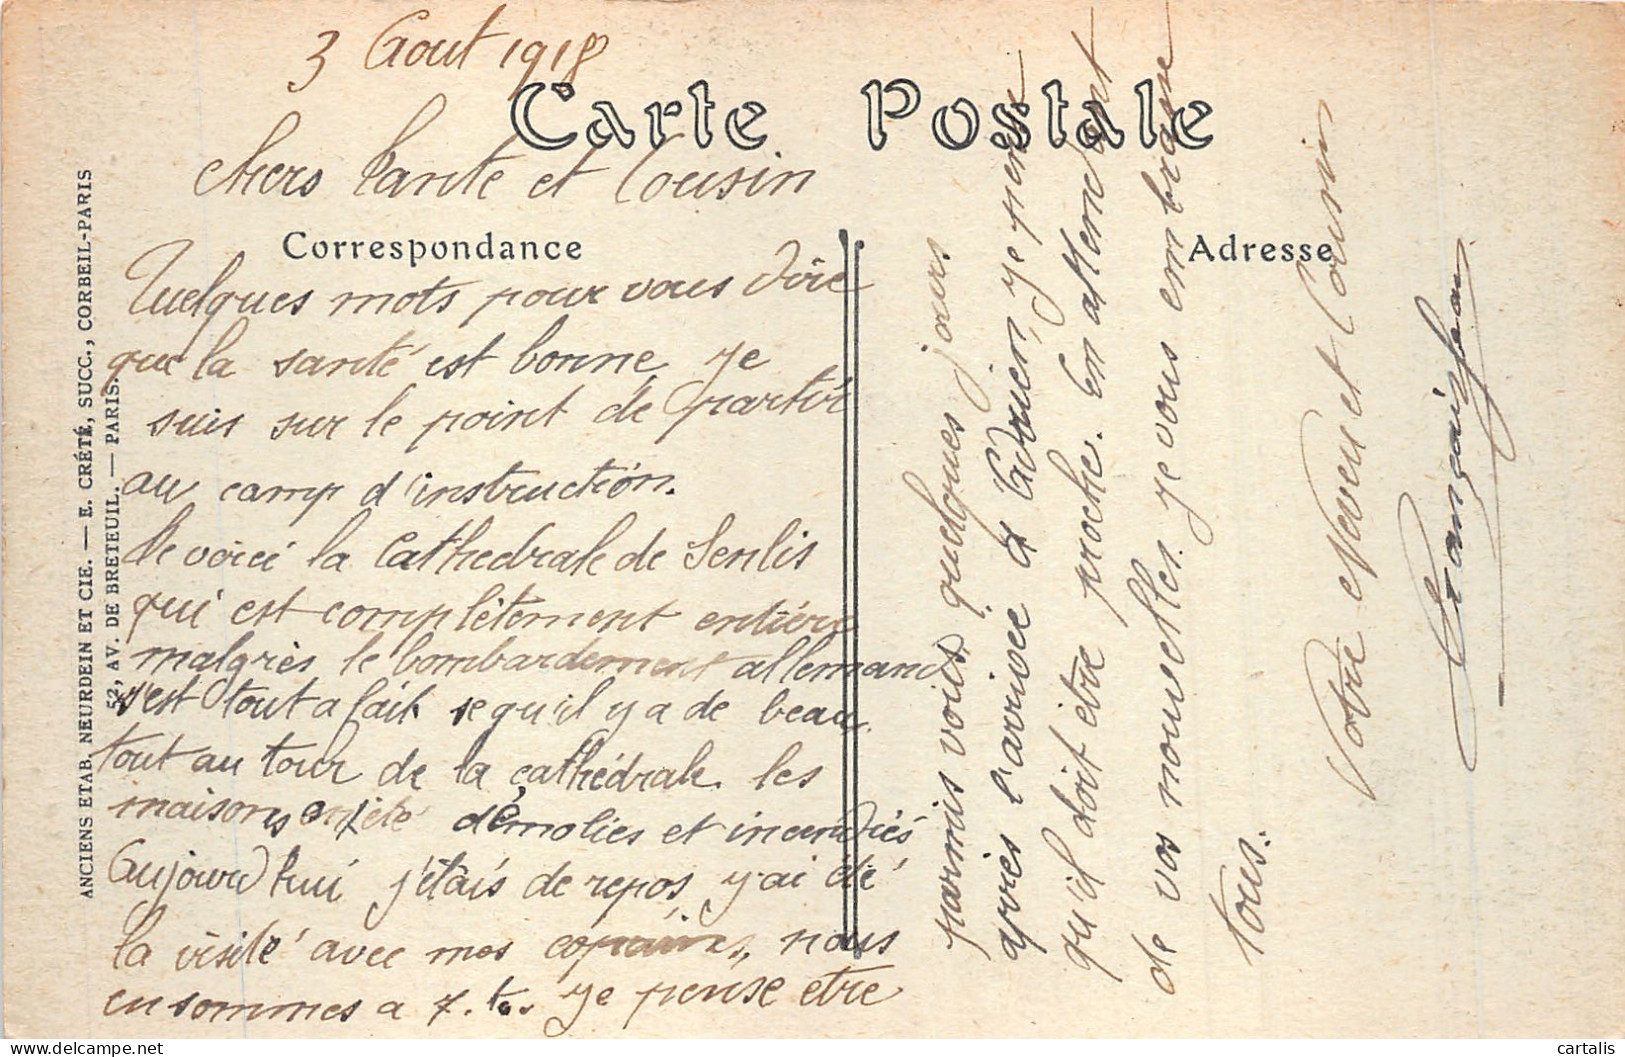 3 Aout 1918
Carte Postale
chers Tante et Cousin
Correspondance
Adresse
Quelques mots pour vous dire
que la santé est bonne je
suis sur le point de partir
au camp d'instruction.
Je voici la Cathedrale de Senlis
qui est complètement entière
malgrès le bombardement allemand
s'est tout a fait se qu'il y a de beau
tout au tour de la cathédrale les
maisons ont été démolies et incendiés
Aujourd hui j'étais de repos j'ai été
la visité avec mes copains, nous
en sommes a 7. k. je pense être
parmis vous quelques jours
après l'arrivée d'Adrien, je pense
qu'il doit être proche. En attendant
de vos nouvelles je vous embrasse
tous.
Votre Neveu et Cousin
ANCIENS ETAB. NEURDEIN ET CIE. — E. CRÉTÉ, SUCC., CORBEIL-PARIS
52, AV. DE BRETEUIL. — PARIS.
cartalis